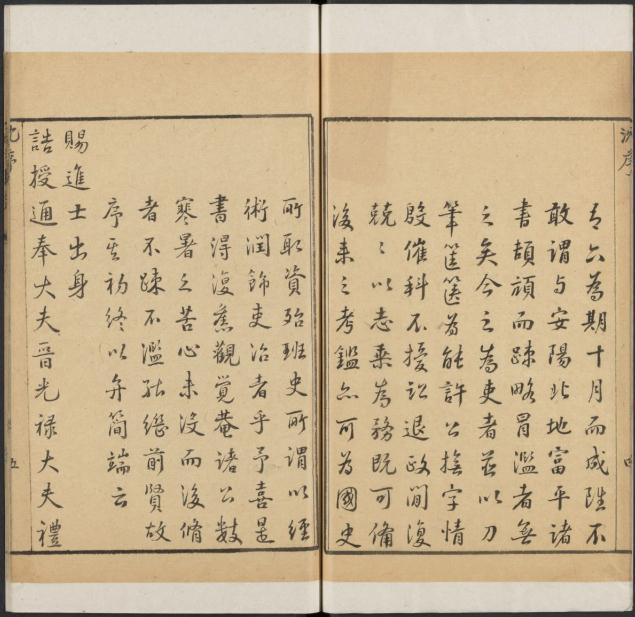 沈序
四
有六為期十月而成雖不
敢謂与安陽北地富平諸
書頡頏而踈略冒濫者無
之矣今之為吏者並以刀
筆筐篋為能許公撫字情
殷催科不擾訟退政閒復
兢〻以志乘為務既可備
後来之考鑑亦可為國史
所取資殆班史所謂以經
術潤飾吏治者乎予喜是
書得復蕉觀覚菴諸公數
寒暑之苦心未没而後脩
者不踈不濫能繼前賢故
序其初終以弁簡端云
賜進士出身
誥授通奉大夫晋光禄大夫禮
沈序
五